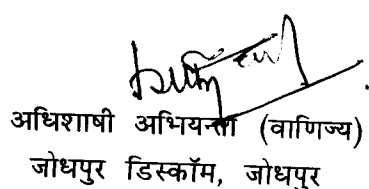 अधिशाषी अभियन्ता (वाणिज्य)
जोधपुर डिस्कॉम, जोधपुर